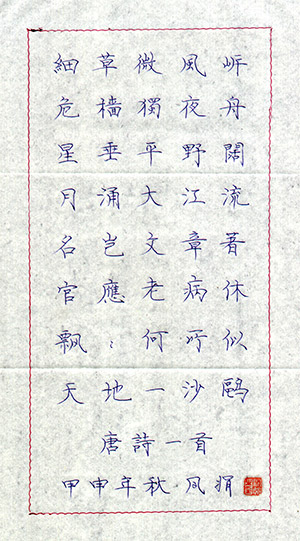 細草微風岸
危檣獨夜舟
星垂平野闊
月涌大江流
名豈文章著
官應老病休
飄〻何所似
天地一沙鷗
唐詩一首
甲申年秋·凤娟